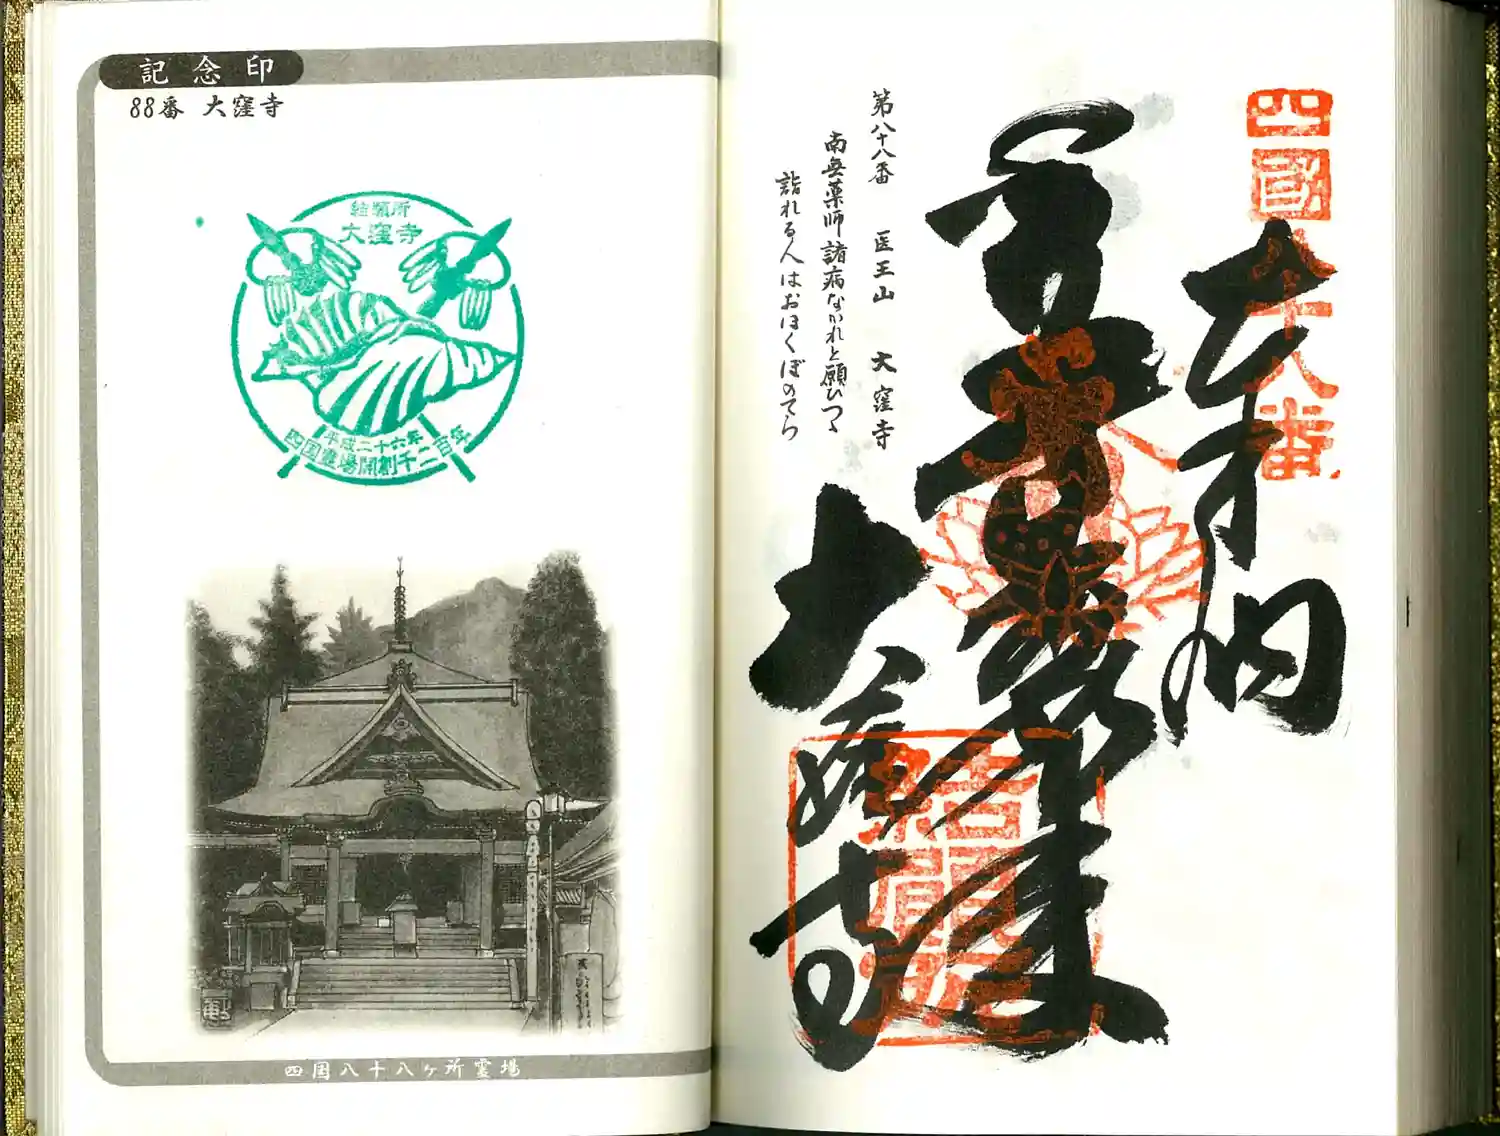 記念印
88番 大窪寺
結願所
大窪寺
平成二十六年
四国霊場開創千二百年
四国八十八ヶ所霊場
四國八十八番
奉納
第八十八番 医王山 大窪寺
南無薬師諸病なかれと願ひつゝ
詣れる人はおほくぼのてら
大窪寺
結願所